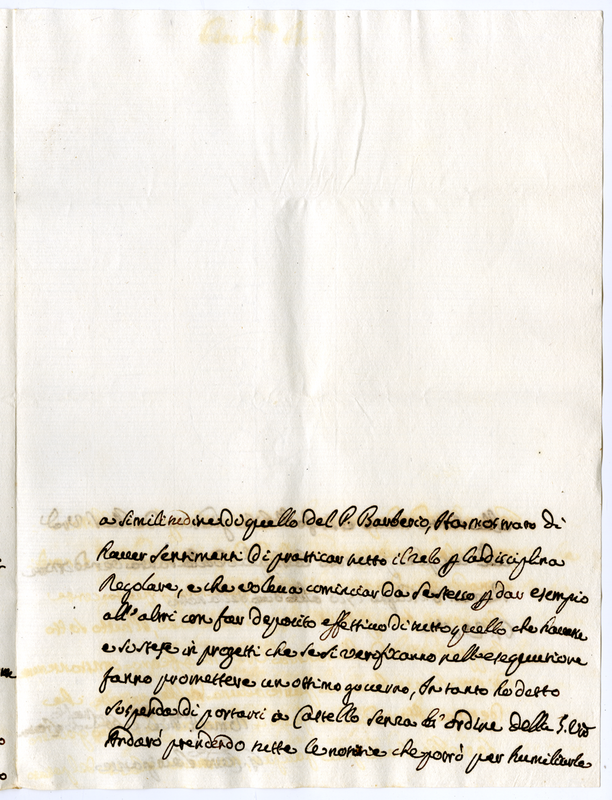 a similitudine di quello del P. Barberio, Ha mostrato di
hauer sentimenti di pratticar tutto il zelo p la disciplina
Regolare, e che voleua cominciar da se stesso p dar esempio
all'altri con far deposito effettiuo di tutto quello che haueua
e si stese in progetti che se si verificanno nell'esequutione
fanno promettere un ottimo gouerno, In tanto hò detto
suspenda di portarsi à Castello senza l'ordine della S. V.
Andarò prendendo tutte le notitie che potrò per humiliarle